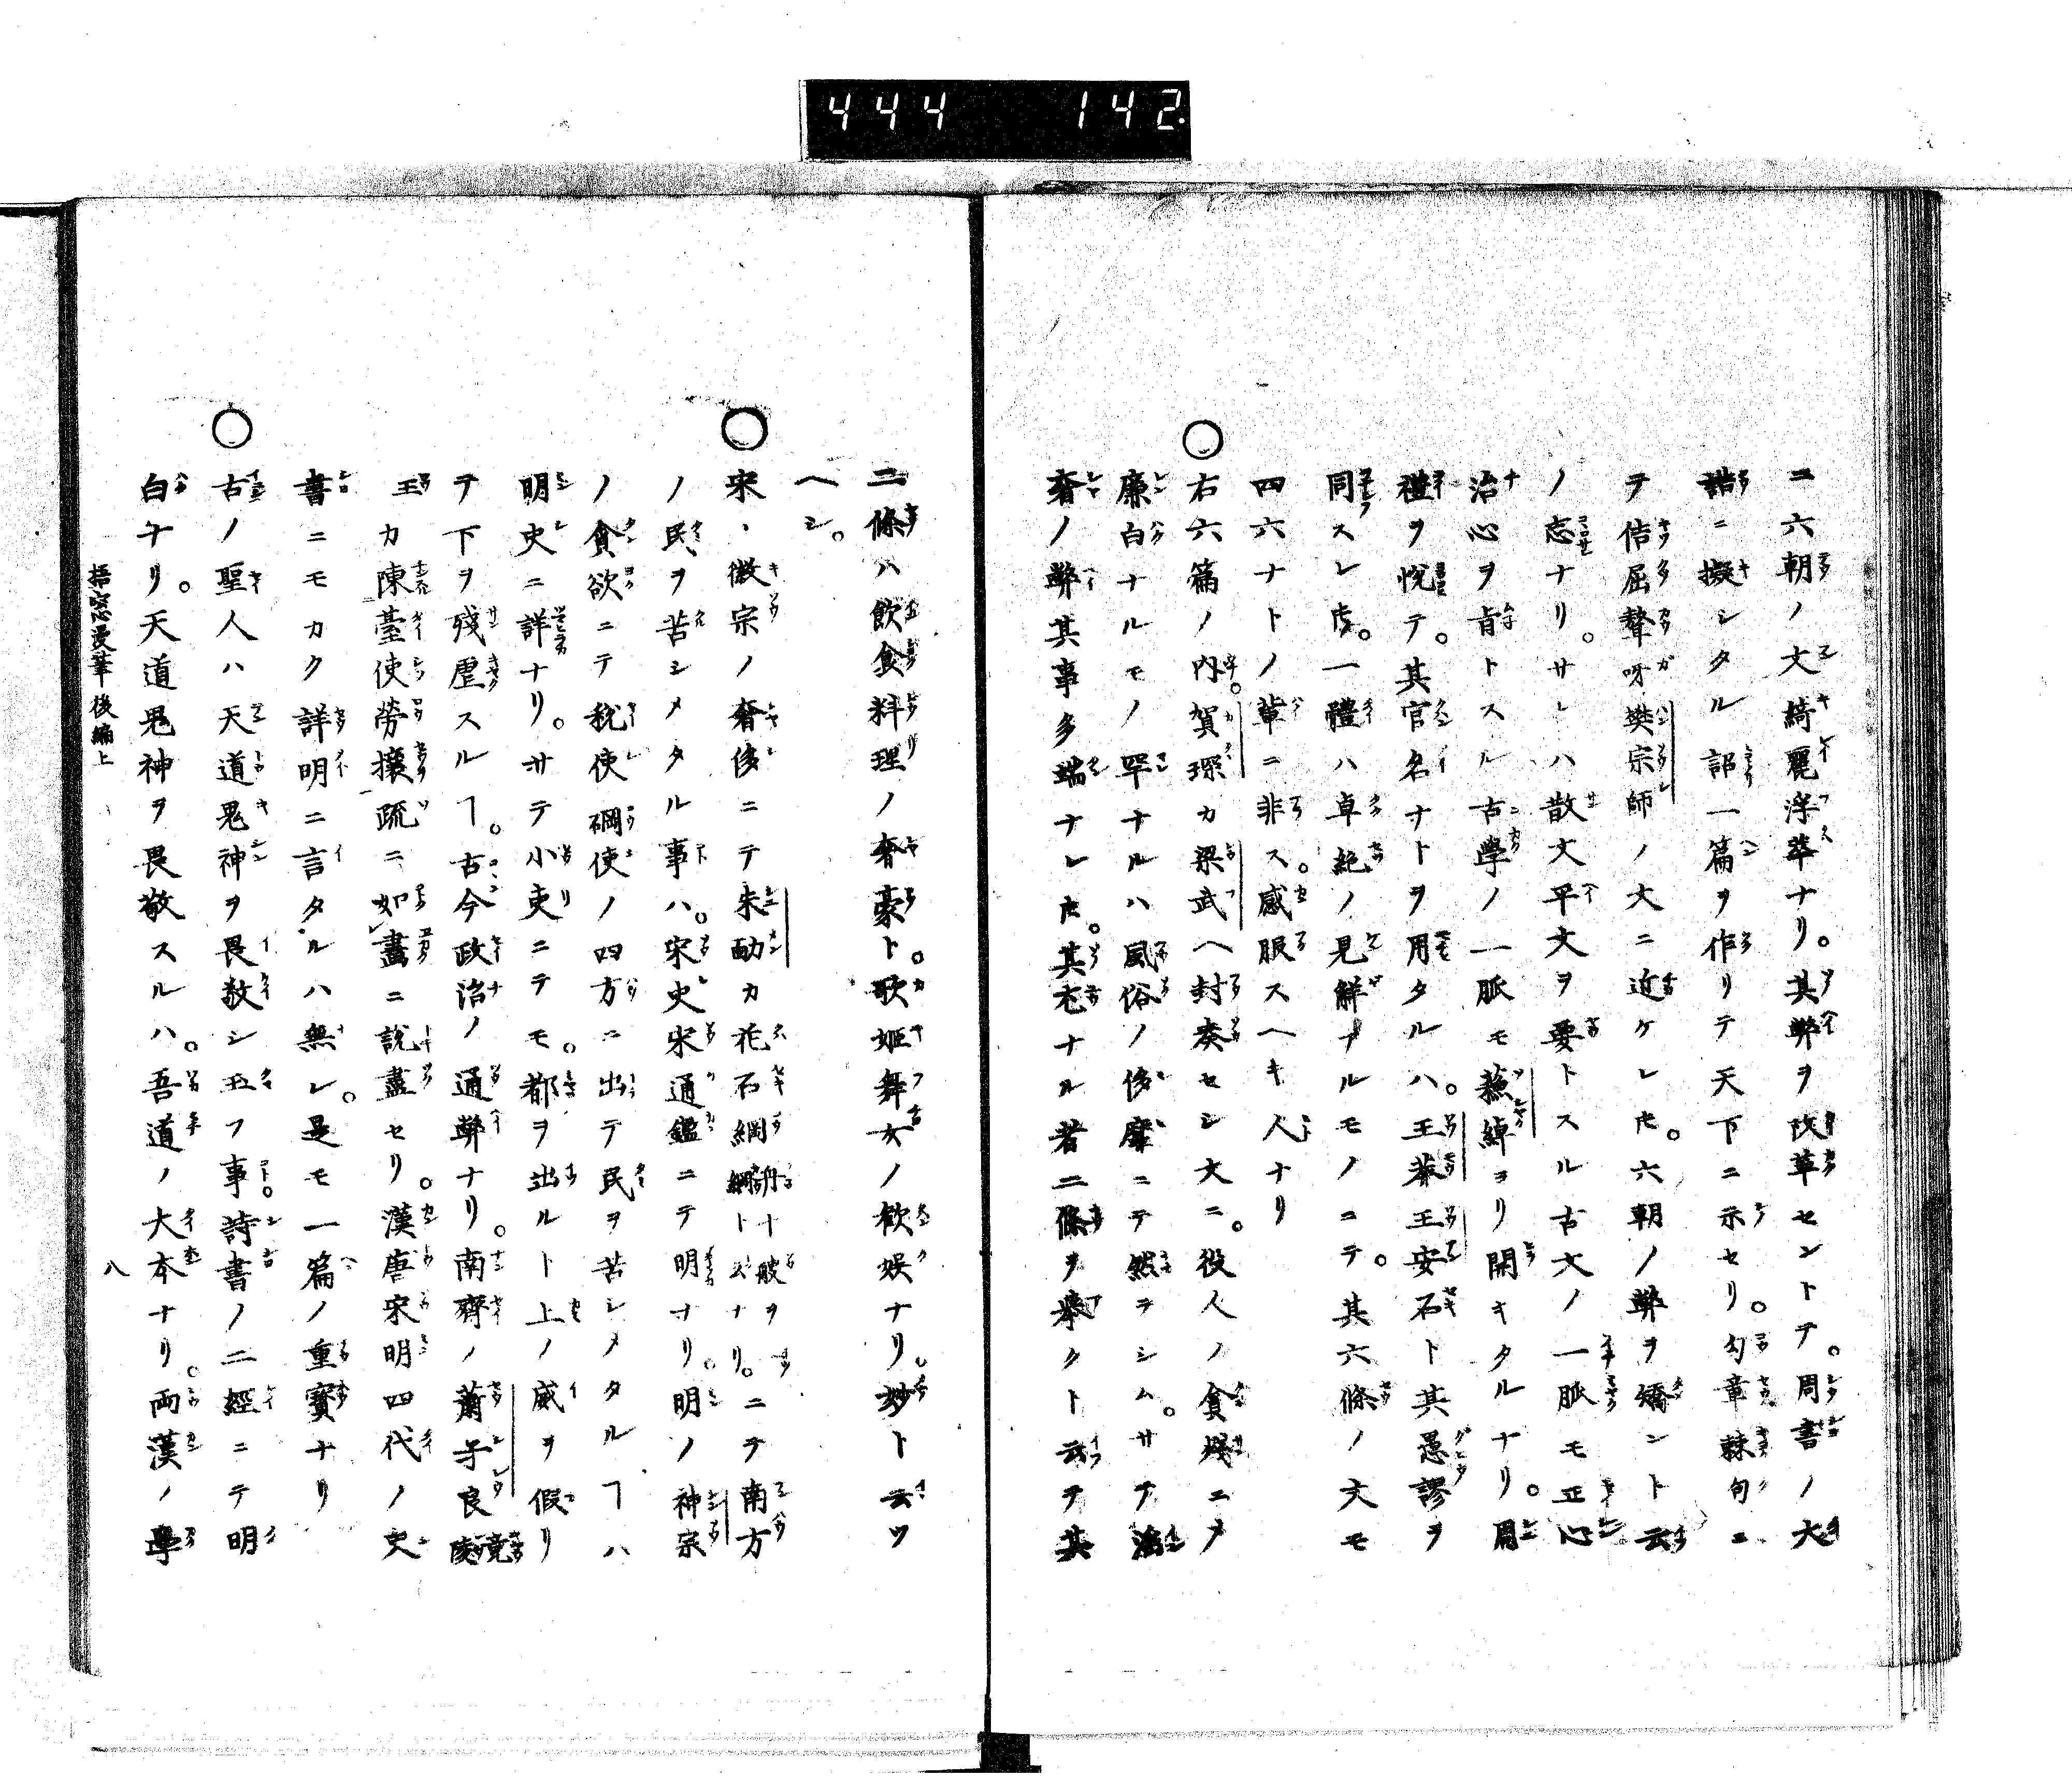 444 142
ニ六朝ノ文綺麗浮華ナリ。其弊ヲ改革セントテ。周書ノ大
誥ニ擬シタル詔一篇ヲ作リテ天下ニ示セリ。勾章棘句ニ
テ佶屈聱呀樊宗師ノ大ニ近ケレ𪜈。六朝ノ弊ヲ矯ント云
ノ志ナリ。サレハ散文平文ヲ要トスル古文ノ一脈モ正心
治心ヲ旨トスル古學ノ一脈モ蘇綽ヨリ開キタルナリ。周
禮ヲ悅テ。其官名ナトヲ用タルハ。王莽王安石ト其愚謬ヲ
同スレ𪜈。一體ハ卓絶ノ見解ナルモノニテ。其六條ノ文モ
四六ナトノ輩ニ非ス。感服スヘキ人ナリ
○右六篇ノ内。賀琛カ梁武ヘ封奏セシ文ニ。役人ノ貪殘ニメ
廉白ナルモノ罕ナルハ風俗ノ侈靡ニテ然ラシム。サテ淫
奢ノ弊其事多端ナレ𪜈。其尤ナル者二條ヲ擧クト云テ其
二條ハ飲食料理ノ奢豪ト。歌姬舞女ノ歓娛ナリ。妙ト云ツ
ヘシ。
○宋ノ徽宗ノ奢侈ニテ朱勔カ花石綱舟十艘ヲ一綱ト云ナリ。ニテ南方
ノ民ヲ苦シメタル事ハ。宋史宋通鑑ニテ明ナリ。明ノ神宗
ノ貪欲ニテ税使礦使ノ四方ニ出テ民ヲ苦シメタルヿハ
明史ニ詳ナリ。サテ小吏ニテモ。都ヲ出ルト上ノ威ヲ假リ
テ下ヲ殘虐スルヿ。古今政治ノ通弊ナリ。南齊ノ蕭子良竟陵
王カ陳臺使勞擾疏ニ如畫ニ說盡セリ。漢唐宋明四代ノ史
書ニモカク詳明ニ言タルハ無レ。是モ一篇ノ重寳ナリ
○古ノ聖人ハ天道鬼神ヲ畏敬シ玉フ事。詩書ノ二經ニテ明
白ナリ。天道鬼神ヲ畏敬スルハ。吾道ノ大本ナリ。両漢ノ學
梧窓漫筆後編上 八